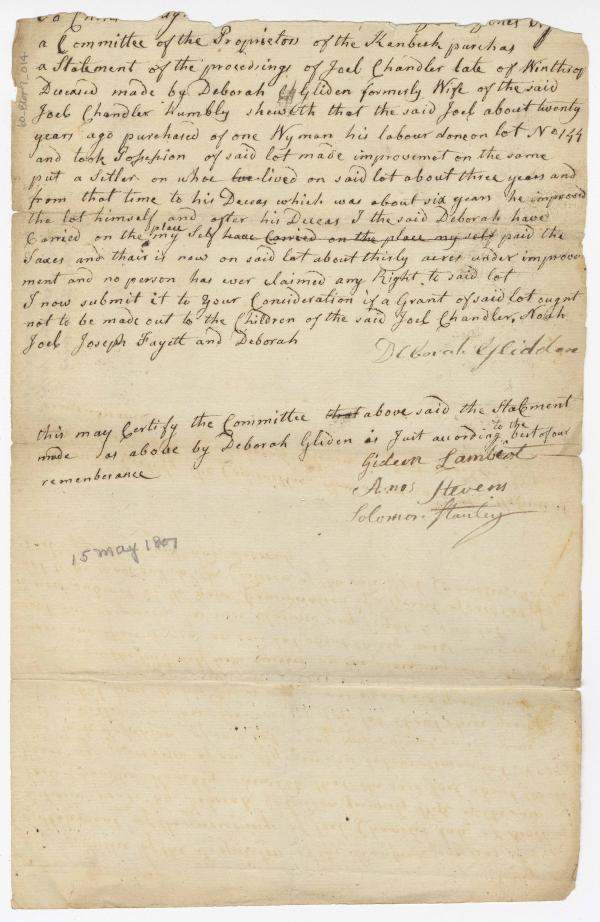 a Committee of the Proprietors of the Kenbeck purchas
a Statement of the proceedings of Joel Chandler late of Winthrop
Deceased made by Deborah Gliden formerly Wife of the said
Joel Chandler humbly sheweth that the said Joel about twenty
years ago purchased of one Wyman his labour done on lot No 144
and took Possession of said lot made improvemet on the same
put a Setler on whoe lived on said lot about three years and
from that time to his Deceas which was about six years he improved
the lot himself and after his Deceas I the said Deborah have
Carried on the place my Self have Carried on the place my self paid the
Taxes and thair is now on said lot about thirty acres under improve
ment and no person has ever claimed any Right to said lot
I now submit it to your Consideration if a Grant of said lot ought
not to be made out to the Children of the said Joel Chandler, Noah
Joel Joseph Fayett and Deborah
Deborah Glidden
this may Certify the Committee that above said the Statment
made as above by Deborah Gliden is Just according to the best of our
rememberance
Gideon Lambert
Amos Stevens
Solomon Stanley
15 May 1801